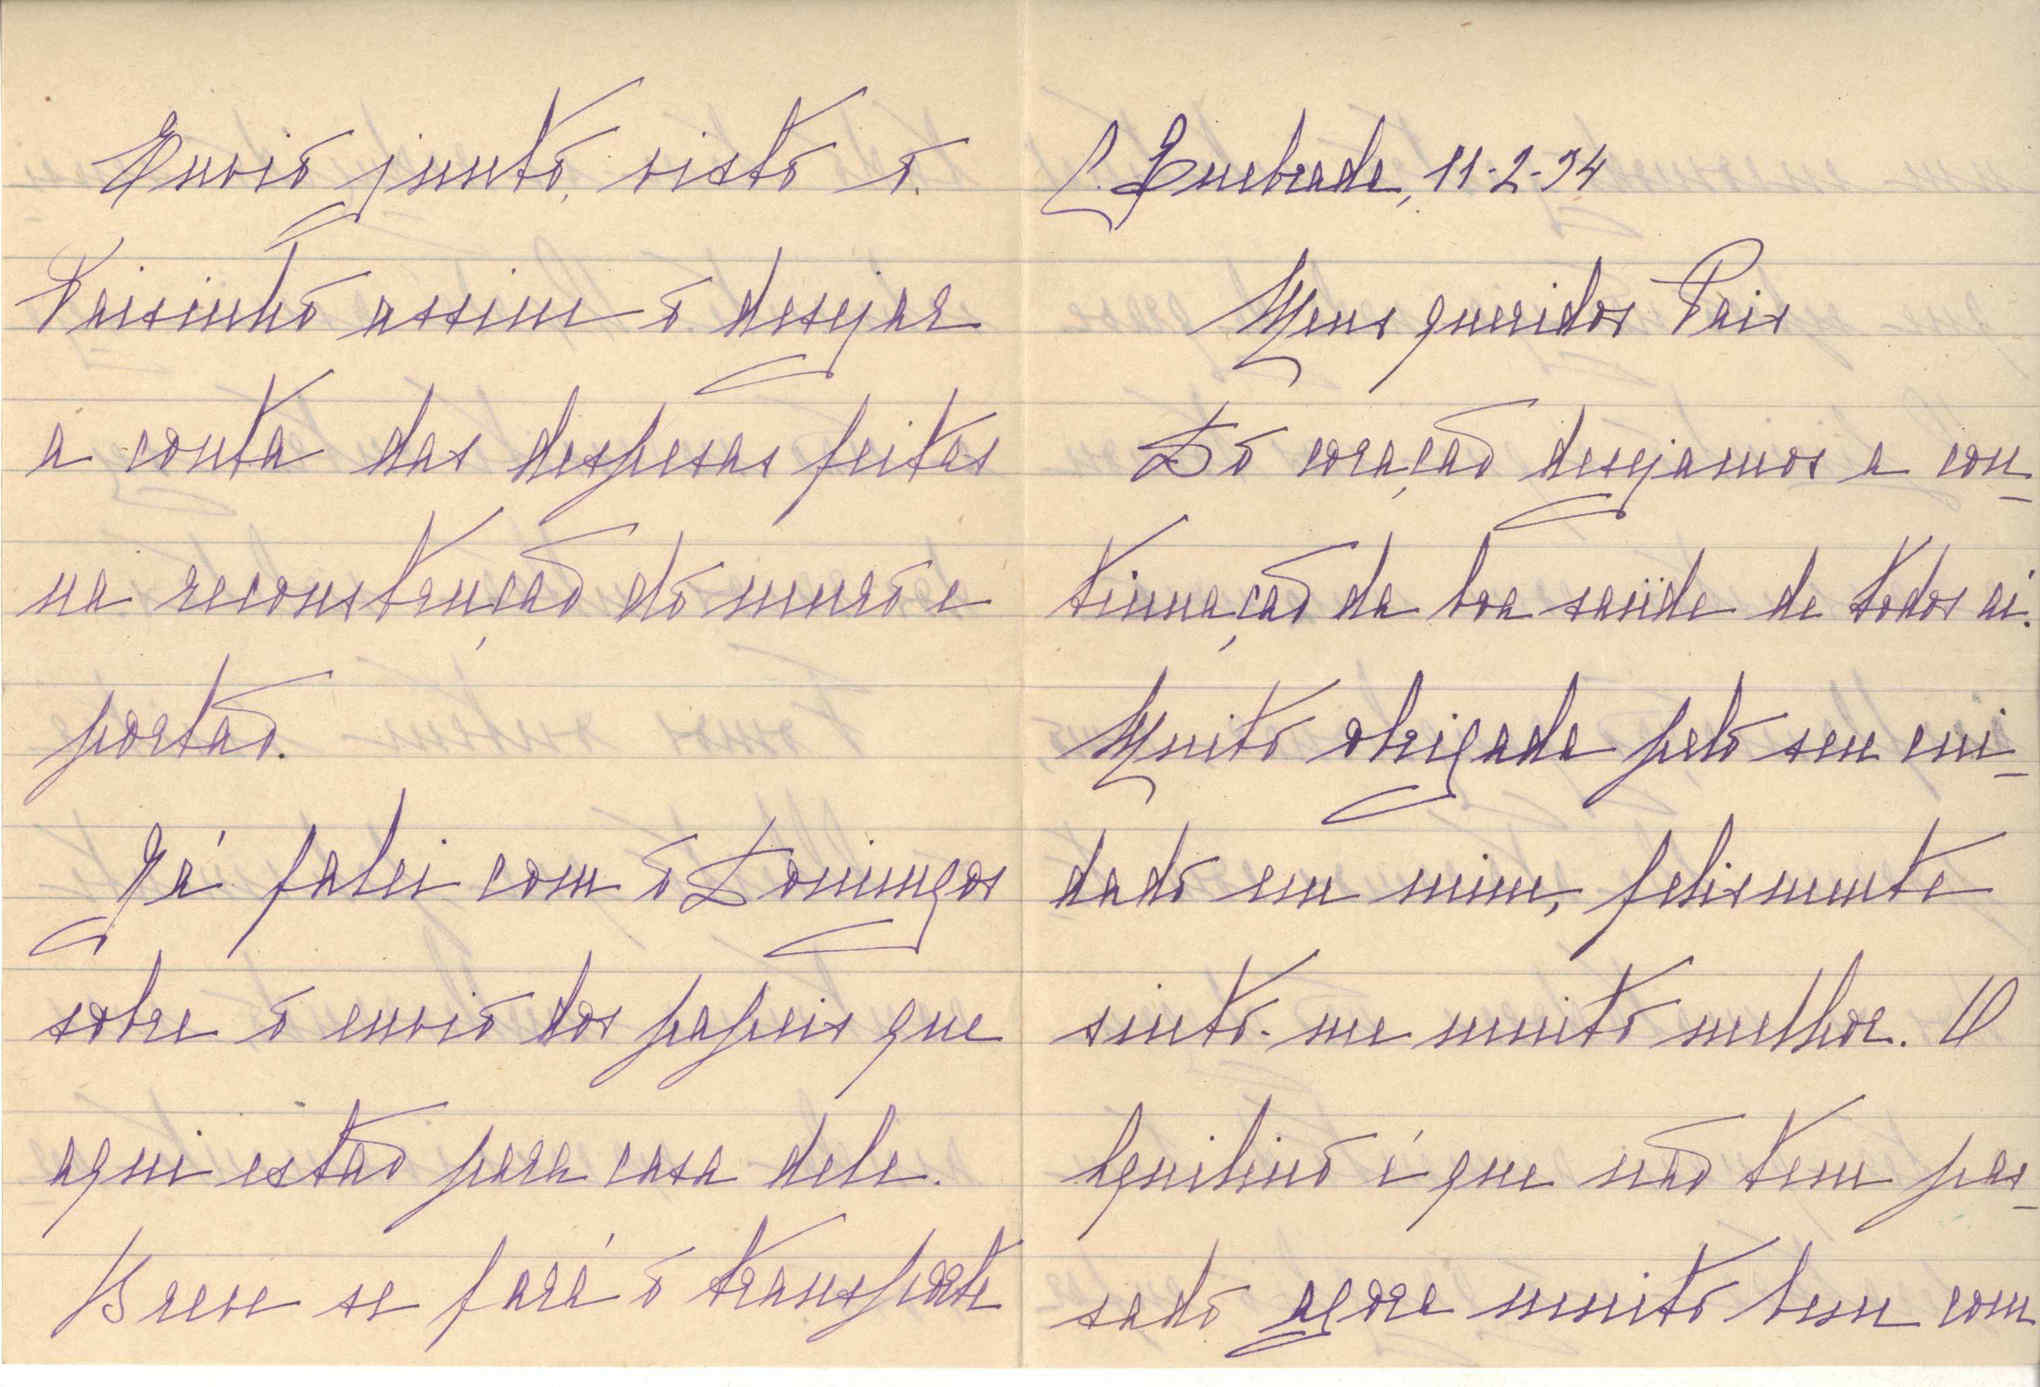 C. Quebrada, 11-2-54
Meus queridos Pais
Do coração desejamos a con-
tinuação da boa saúde de todos aí.
Muito obrigada pelo seu cui-
dado em mim, felismente
sinto-me muito melhor. O
Aquilino é que não tem pas-
sado agora muito bem com
Envio junto, visto o
Paisinho assim o desejar
a conta das despesas feitas
na reconstrução do muro e
portão.
Já falei com o Domingos
sobre o envio dos papeis que
aqui estão para casa dele.
Breve se fará o transporte